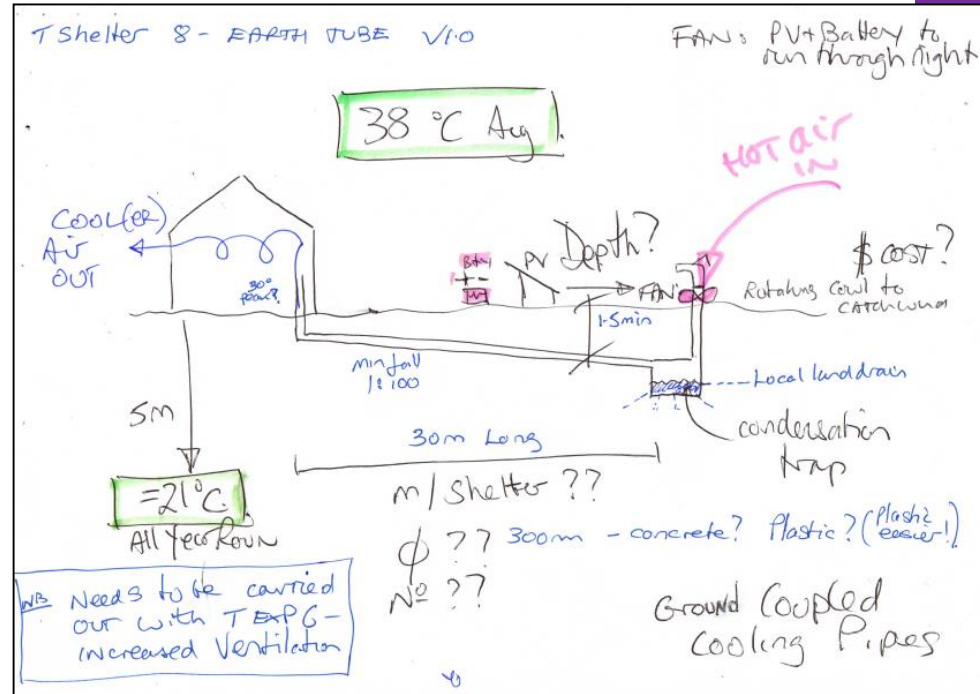 T Shelter 8 - EARTH TUBE V1.0
FAN: PV+Battery to
run through night
38 °C Avg.
HOT air
IN
COOL(ER)
Air
OUT
30°
Batt
PV
Depth?
FAN
$ COST?
Rotating Cowl to
catch wind
1.5min
min fall
1:100
Local land drain
condensation
trap
5m
30m Long
m/ Shelter ??
=21°C.
All Year Roun
Φ ??
300mm - concrete? Plastic? (Plastic
easier!)
No ??
NB Needs to be carried
out with T EXP 6 -
increased Ventilation
Ground Coupled
Cooling Pipes